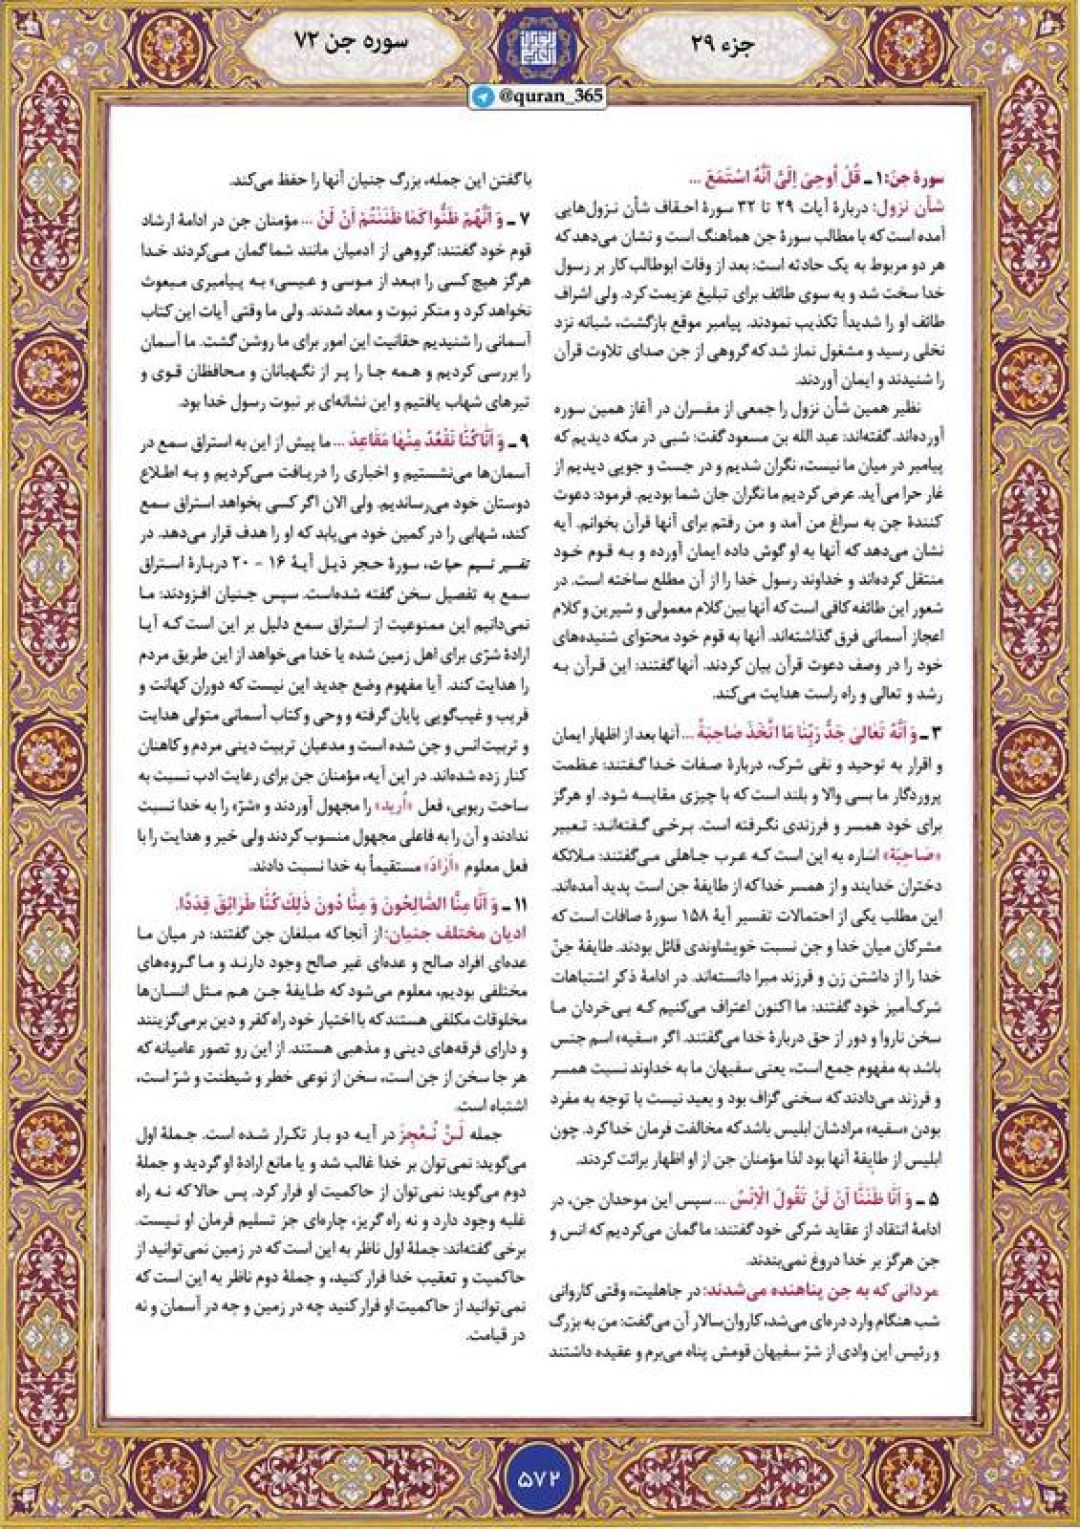 جزء ۲۹
سوره جن ۷۲
@quran_365
سورهٔ جنّ: ۱ ـ قُلْ اُوحِیَ اِلَیَّ اَنَّهُ اسْتَمَعَ ...
شأن نزول: دربارهٔ آیات ۲۹ تا ۳۲ سورهٔ احقاف شأن نزول‌هایی
آمده است که با مطالب سورهٔ جن هماهنگ است و نشان می‌دهد که
هر دو مربوط به یک حادثه است: بعد از وفات ابوطالب کار بر رسول
خدا سخت شد و به سوی طائف برای تبلیغ عزیمت کرد. ولی اشراف
طائف او را شدیداً تکذیب نمودند. پیامبر موقع بازگشت، شبانه نزد
نخلی رسید و مشغول نماز شد که گروهی از جن صدای تلاوت قرآن
را شنیدند و ایمان آوردند.
نظیر همین شأن نزول را جمعی از مفسران در آغاز همین سوره
آورده‌اند. گفته‌اند: عبد الله بن مسعود گفت: شبی در مکه دیدیم که
پیامبر در میان ما نیست، نگران شدیم و در جست و جویی دیدیم از
غار حرا می‌آید. عرض کردیم ما نگران جان شما بودیم. فرمود: دعوت
کنندهٔ جن به سراغ من آمد و من رفتم برای آنها قرآن بخوانم. آیه
نشان می‌دهد که آنها به او گوش داده ایمان آورده و به قوم خود
منتقل کرده‌اند و خداوند رسول خدا را از آن مطلع ساخته است. در
شعور این طائفه کافی است که آنها بین کلام معمولی و شیرین و کلام
اعجاز آسمانی فرق گذاشته‌اند. آنها به قوم خود محتوای شنیده‌های
خود را در وصف دعوت قرآن بیان کردند. آنها گفتند: این قرآن به
رشد و تعالی و راه راست هدایت می‌کند.
۳ ـ وَ اَنَّهُ تَعَالَی جَدُّ رَبِّنَا مَا اتَّخَذَ صَاحِبَةً ... آنها بعد از اظهار ایمان
و اقرار به توحید و نفی شرک، دربارهٔ صفات خدا گفتند: عظمت
پروردگار ما بسی والا و بلند است که با چیزی مقایسه شود. او هرگز
برای خود همسر و فرزندی نگرفته است. برخی گفته‌اند: تعبیر
«صَاحِبَة» اشاره به این است که عرب جاهلی می‌گفتند: ملائکه
دختران خدایند و از همسر خدا که از طایفهٔ جن است پدید آمده‌اند.
این مطلب یکی از احتمالات تفسیر آیهٔ ۱۵۸ سورهٔ صافات است که
مشرکان میان خدا و جن نسبت خویشاوندی قائل بودند. طایفهٔ جنّ
خدا را از داشتن زن و فرزند مبرا دانسته‌اند. در ادامهٔ ذکر اشتباهات
شرک‌آمیز خود گفتند: ما اکنون اعتراف می‌کنیم که بی‌خردان ما
سخن ناروا و دور از حق دربارهٔ خدا می‌گفتند. اگر «سفیه» اسم جنس
باشد به مفهوم جمع است، یعنی سفیهان ما به خداوند نسبت همسر
و فرزند می‌دادند که سخنی گزاف بود و بعید نیست با توجه به مفرد
بودن «سفیه» مرادشان ابلیس باشد که مخالفت فرمان خدا کرد. چون
ابلیس از طایفهٔ آنها بود لذا مؤمنان جن از او اظهار برائت کردند.
۵ ـ وَ اَنَّا ظَنَنَّا اَنْ لَنْ تَقُولَ الْاِنْسُ ... سپس این موحدان جن، در
ادامهٔ انتقاد از عقاید شرکی خود گفتند: ما گمان می‌کردیم که انس و
جن هرگز بر خدا دروغ نمی‌بندند.
مردانی که به جن پناهنده می‌شدند: در جاهلیت، وقتی کاروانی
شب هنگام وارد دره‌ای می‌شد، کاروان‌سالار آن می‌گفت: من به بزرگ
و رئیس این وادی از شرّ سفیهان قومش پناه می‌برم و عقیده داشتند
با گفتن این جمله، بزرگ جنیان آنها را حفظ می‌کند.
۷ ـ وَ اَنَّهُمْ ظَنُّوا کَمَا ظَنَنْتُمْ اَنْ لَنْ ... مؤمنان جن در ادامهٔ ارشاد
قوم خود گفتند: گروهی از آدمیان مانند شما گمان می‌کردند خدا
هرگز هیچ کسی را «بعد از موسی و عیسی» به پیامبری مبعوث
نخواهد کرد و منکر نبوت و معاد شدند. ولی ما وقتی آیات این کتاب
آسمانی را شنیدیم حقانیت این امور برای ما روشن گشت. ما آسمان
را بررسی کردیم و همه جا را پر از نگهبانان و محافظان قوی و
تیرهای شهاب یافتیم و این نشانه‌ای بر نبوت رسول خدا بود.
۹ ـ وَ اَنَّا کُنَّا نَقْعُدُ مِنْهَا مَقَاعِدَ ... ما پیش از این به استراق سمع در
آسمان‌ها می‌نشستیم و اخباری را دریافت می‌کردیم و به اطلاع
دوستان خود می‌رساندیم. ولی الان اگر کسی بخواهد استراق سمع
کند، شهابی را در کمین خود می‌یابد که او را هدف قرار می‌دهد. در
تفسیر نسیم حیات، سورهٔ حجر ذیل آیهٔ ۱۶ - ۲۰ دربارهٔ استراق
سمع به تفصیل سخن گفته شده‌است. سپس جنیان افزودند: ما
نمی‌دانیم این ممنوعیت از استراق سمع دلیل بر این است که آیا
ارادهٔ شرّی برای اهل زمین شده یا خدا می‌خواهد از این طریق مردم
را هدایت کند. آیا مفهوم وضع جدید این نیست که دوران کهانت و
فریب و غیب‌گویی پایان گرفته و وحی و کتاب آسمانی متولی هدایت
و تربیت انس و جن شده است و مدعیان تربیت دینی مردم و کاهنان
کنار زده شده‌اند. در این آیه، مؤمنان جن برای رعایت ادب نسبت به
ساحت ربوبی، فعل «اُرید» را مجهول آوردند و «شرّ» را به خدا نسبت
ندادند و آن را به فاعلی مجهول منسوب کردند ولی خیر و هدایت را با
فعل معلوم «اَرَادَ» مستقیماً به خدا نسبت دادند.
۱۱ ـ وَ اَنَّا مِنَّا الصَّالِحُونَ وَ مِنَّا دُونَ ذَلِكَ كُنَّا طَرَائِقَ قِدَدًا.
ادیان مختلف جنیان: از آنجا که مبلغان جن گفتند: در میان ما
عده‌ای افراد صالح و عده‌ای غیر صالح وجود دارند و ما گروه‌های
مختلفی بودیم، معلوم می‌شود که طایفهٔ جن هم مثل انسان‌ها
مخلوقات مکلفی هستند که با اختیار خود راه کفر و دین برمی‌گزینند
و دارای فرقه‌های دینی و مذهبی هستند. از این رو تصور عامیانه که
هر جا سخن از جن است، سخن از نوعی خطر و شیطنت و شرّ است،
اشتباه است.
جمله لَنْ نُعْجِزَ در آیه دو بار تکرار شده است. جملهٔ اول
می‌گوید: نمی‌توان بر خدا غالب شد و یا مانع ارادهٔ او گردید و جملهٔ
دوم می‌گوید: نمی‌توان از حاکمیت او فرار کرد. پس حالا که نه راه
غلبه وجود دارد و نه راه گریز، چاره‌ای جز تسلیم فرمان او نیست.
برخی گفته‌اند: جملهٔ اول ناظر به این است که در زمین نمی‌توانید از
حاکمیت و تعقیب خدا فرار کنید، و جملهٔ دوم ناظر به این است که
نمی‌توانید از حاکمیت او فرار کنید چه در زمین و چه در آسمان و نه
در قیامت.
۵۷۲